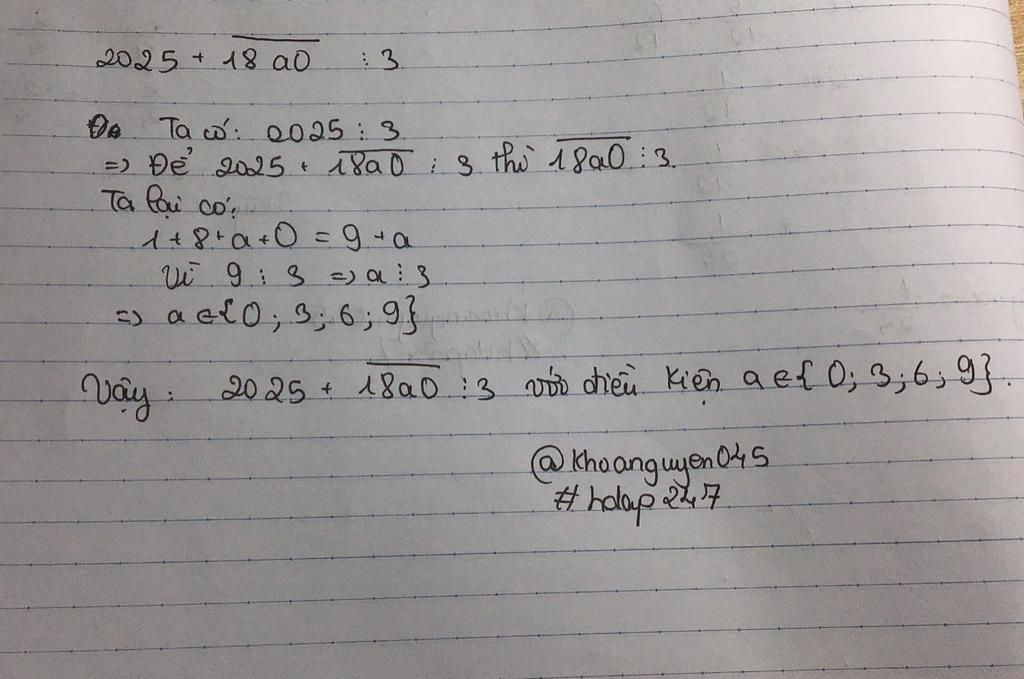 2025 + 18a0 ⋮ 3
Ta có: 2025 ⋮ 3
=> Để 2025 + 18a0 ⋮ 3 thì 18a0 ⋮ 3.
Ta lại có:
1 + 8 + a + 0 = 9 + a
Vì 9 ⋮ 3 => a ⋮ 3
=> a ∈ {0; 3; 6; 9}
Vậy: 2025 + 18a0 ⋮ 3 với điều kiện a ∈ {0; 3; 6; 9}.
@khoanguyen045
# hdap247